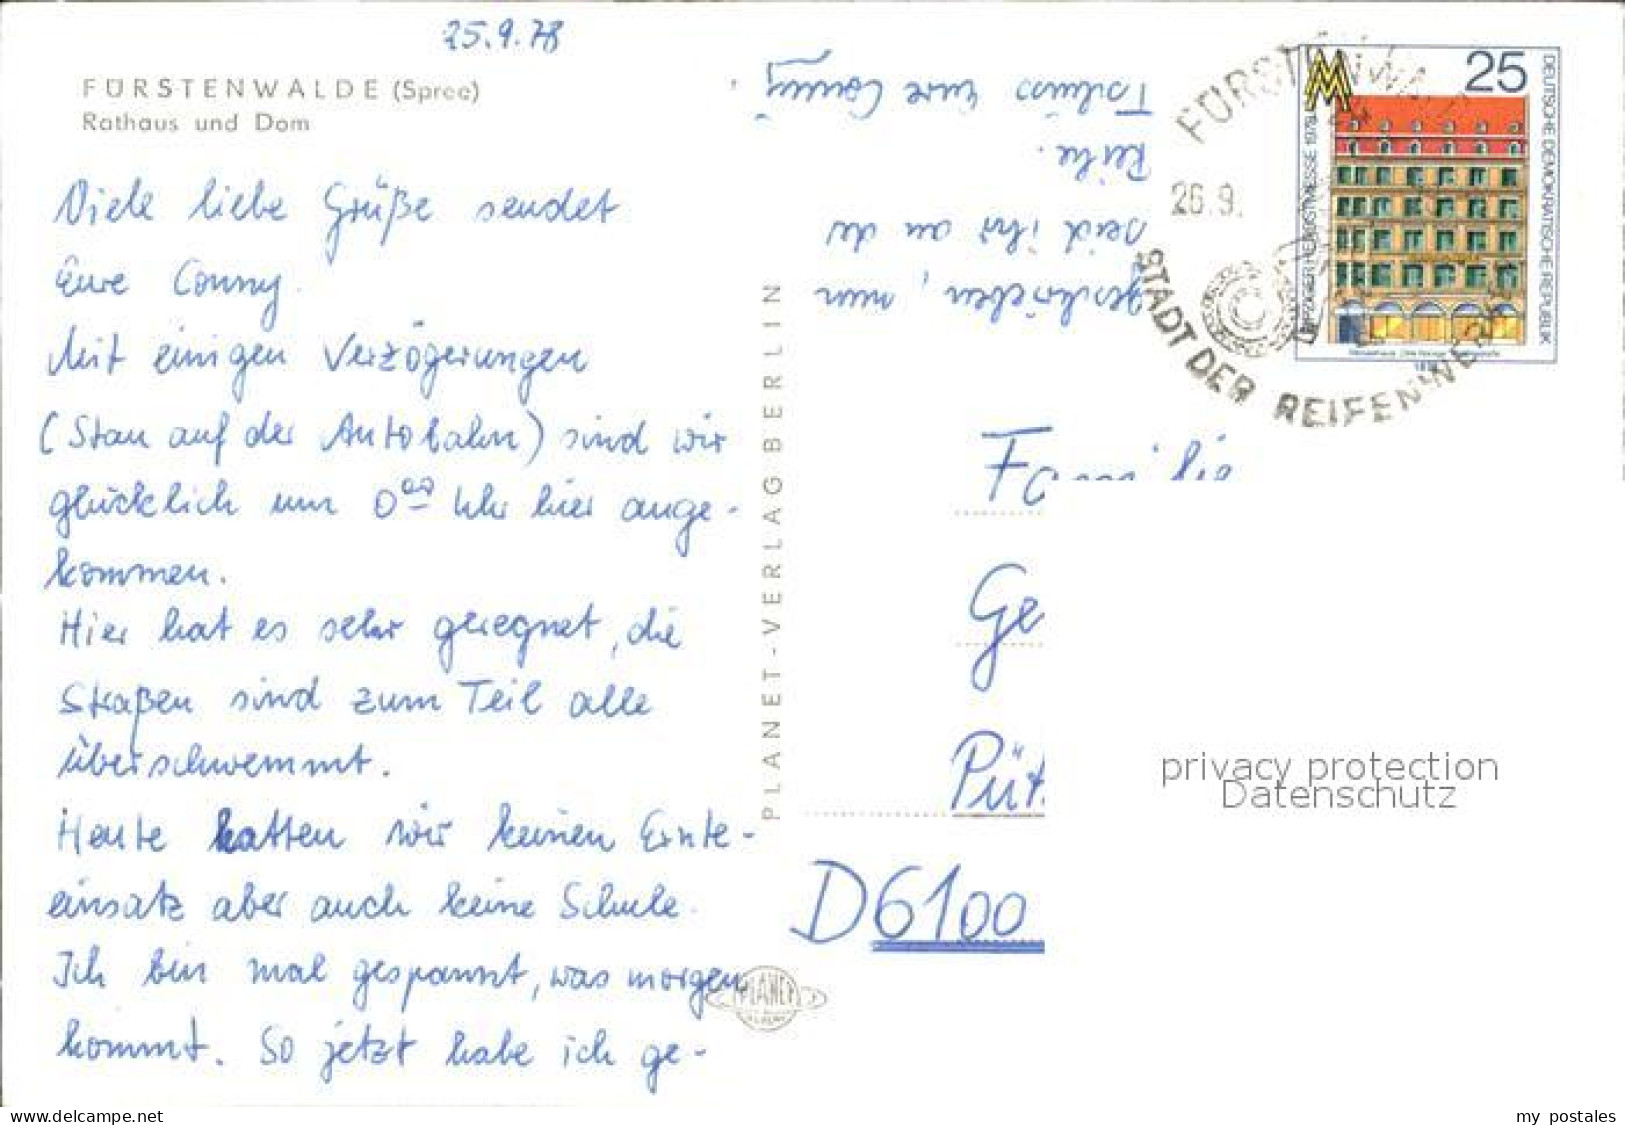 25.9.78
FÜRSTENWALDE (Spree)
Rathaus und Dom
Viele liebe Grüße sendet
Eure Conny.
Mit einigen Verzögerungen
(Stau auf der Autobahn) sind wir
glücklich um 0⁰⁰ Uhr hier ange-
kommen.
Hier hat es sehr geregnet, die
Straßen sind zum Teil alle
überschwemmt.
Heute hatten wir keinen Ernte-
einsatz aber auch keine Schule.
Ich bin mal gespannt, was morgen
kommt. So jetzt habe ich ge-
geschrieben, nun
seid ihr an der
Reihe.
Tschüss Eure Conny.
PLANET-VERLAG BERLIN
PLANET
FÜRSTENWALDE
26.9.
STADT DER REIFENWERKER
25
DEUTSCHE DEMOKRATISCHE REPUBLIK
LEIPZIGER HERBSTMESSE 1978
1978
Familie
Ge
Püt
D6100
privacy protection
Datenschutz
delcampe.net
my postales